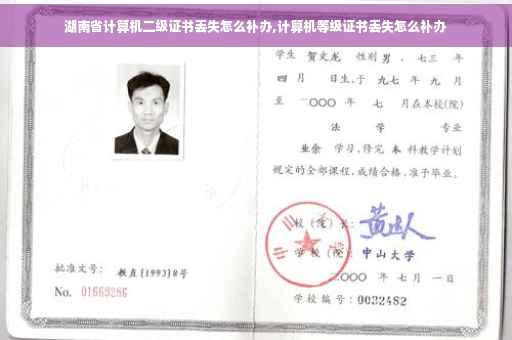 湖南省计算机二级证书丢失怎么补办,计算机等级证书丢失怎么补办
学生 贺文龙 性别 男 、七三 年
四 月 日生,于 九七 年 九 月
至 二〇〇〇 年 七 月在本校(院)
法 学 专业
业余 学习,修完 本 科教学计划
规定的全部课程,成绩合格,准予毕业。
校(院)长:
学校(院): 中山大学
二〇〇〇 年 七 月 一 日
学校编号: 0032482
批准文号: 教直[1993]8号
No. 01669286